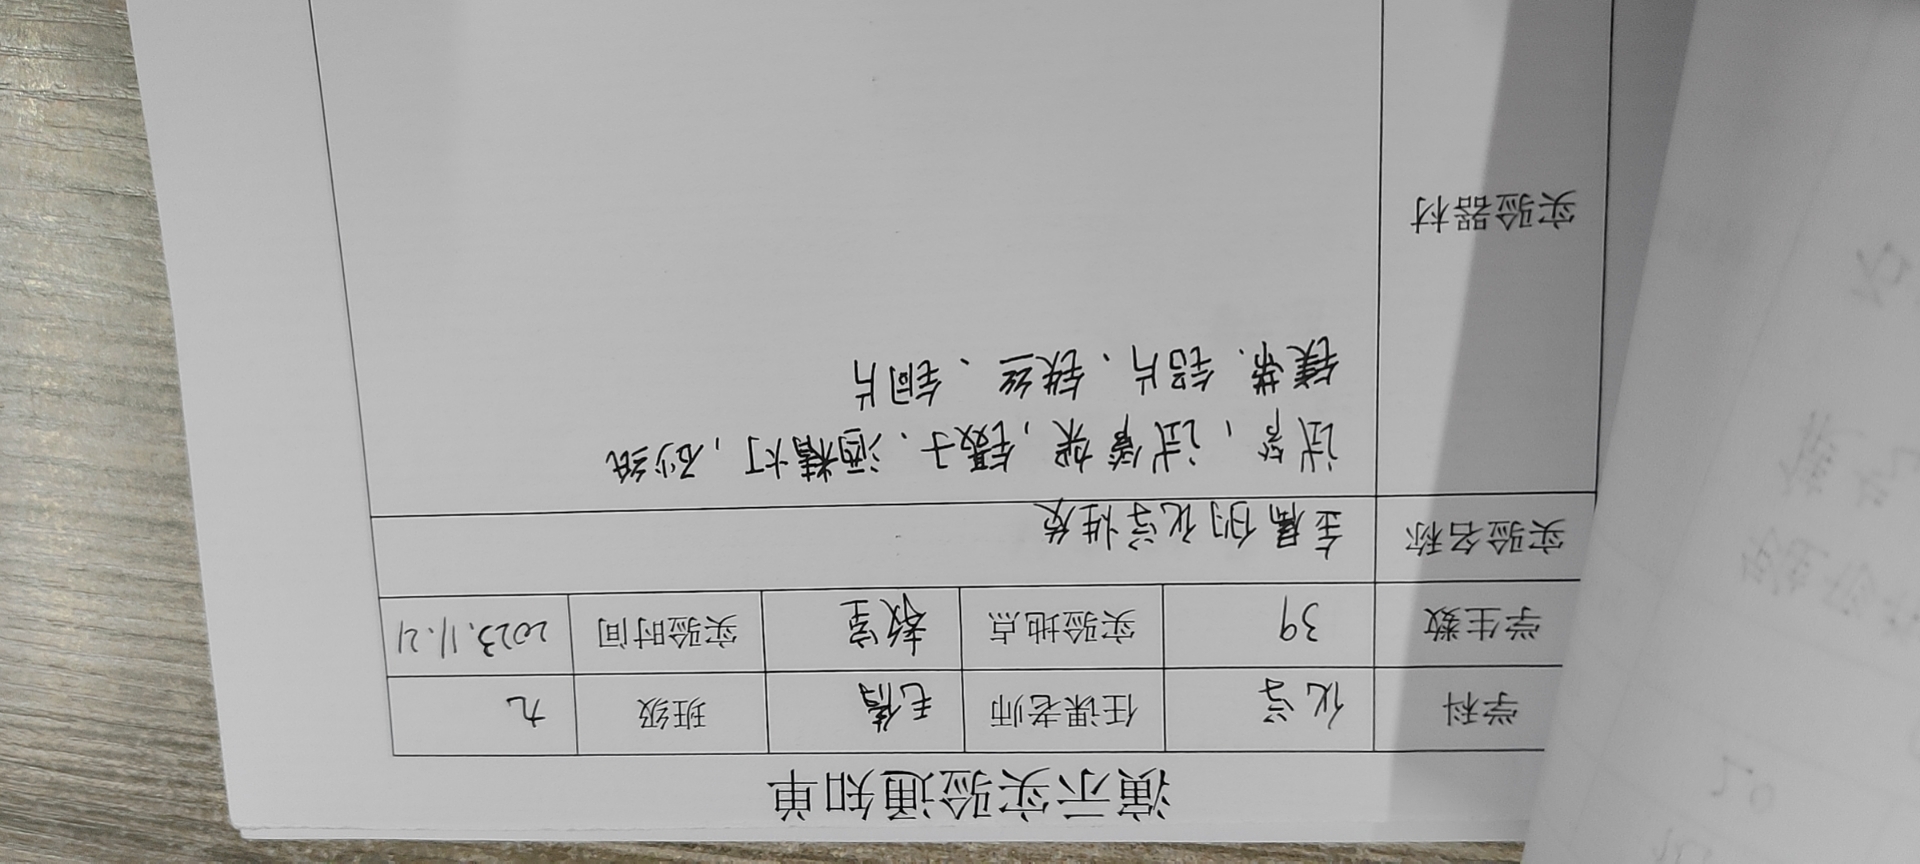 演示实验通知单
学科 化学 任课老师 毛倩 班级 九
学生数 39 实验地点 教室 实验时间 2023.11.21
实验名称 金属的化学性质
实验器材
试管，试管架，镊子、酒精灯，砂纸
镁带、铝片、铁丝、铜片